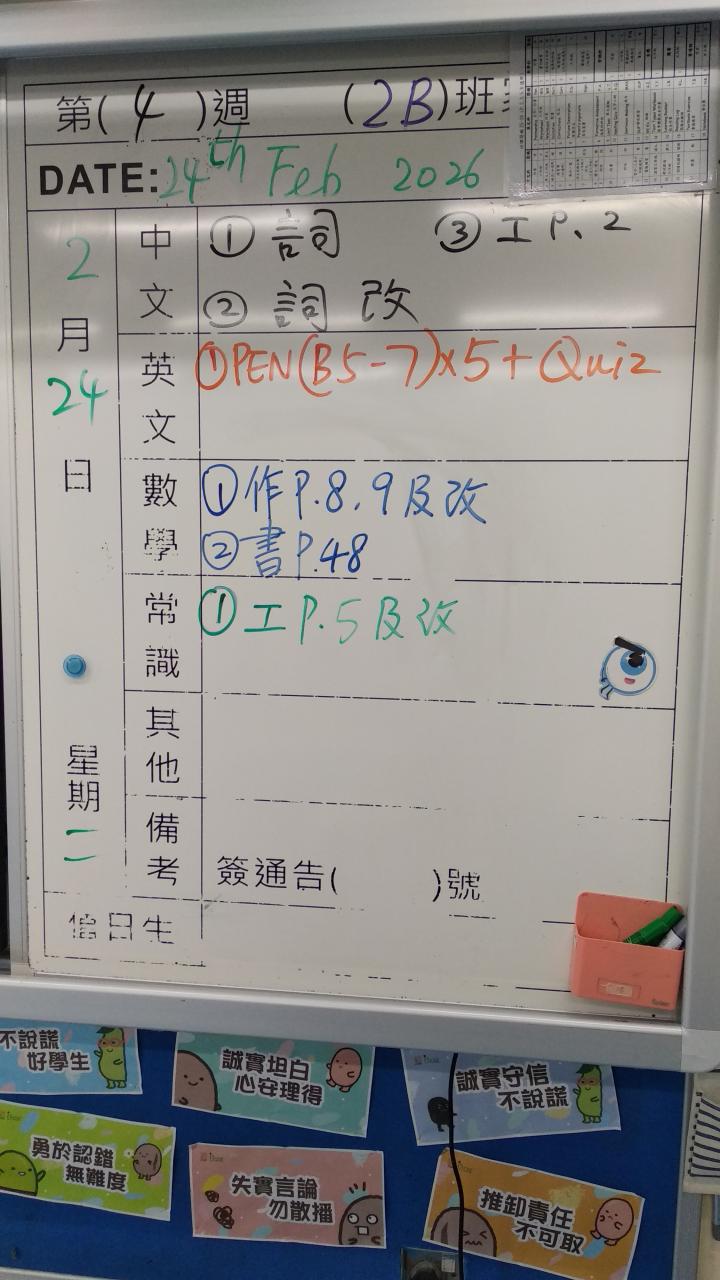 第(4)週 (2B)班
DATE: 24th Feb 2026
2月24日
星期二
中文
① 詞 ③ 工 P. 2
② 詞 改
英文
① PEN(B5-7)x5+Quiz
數學
① 作 P.8, 9 及改
② 書 P.48
常識
① 工 P.5 及改
其他
備考
簽通告( )號
值日生
不說謊
好學生
誠實坦白
心安理得
誠實守信
不說謊
勇於認錯
無難度
失實言論
勿散播
推卸責任
不可取